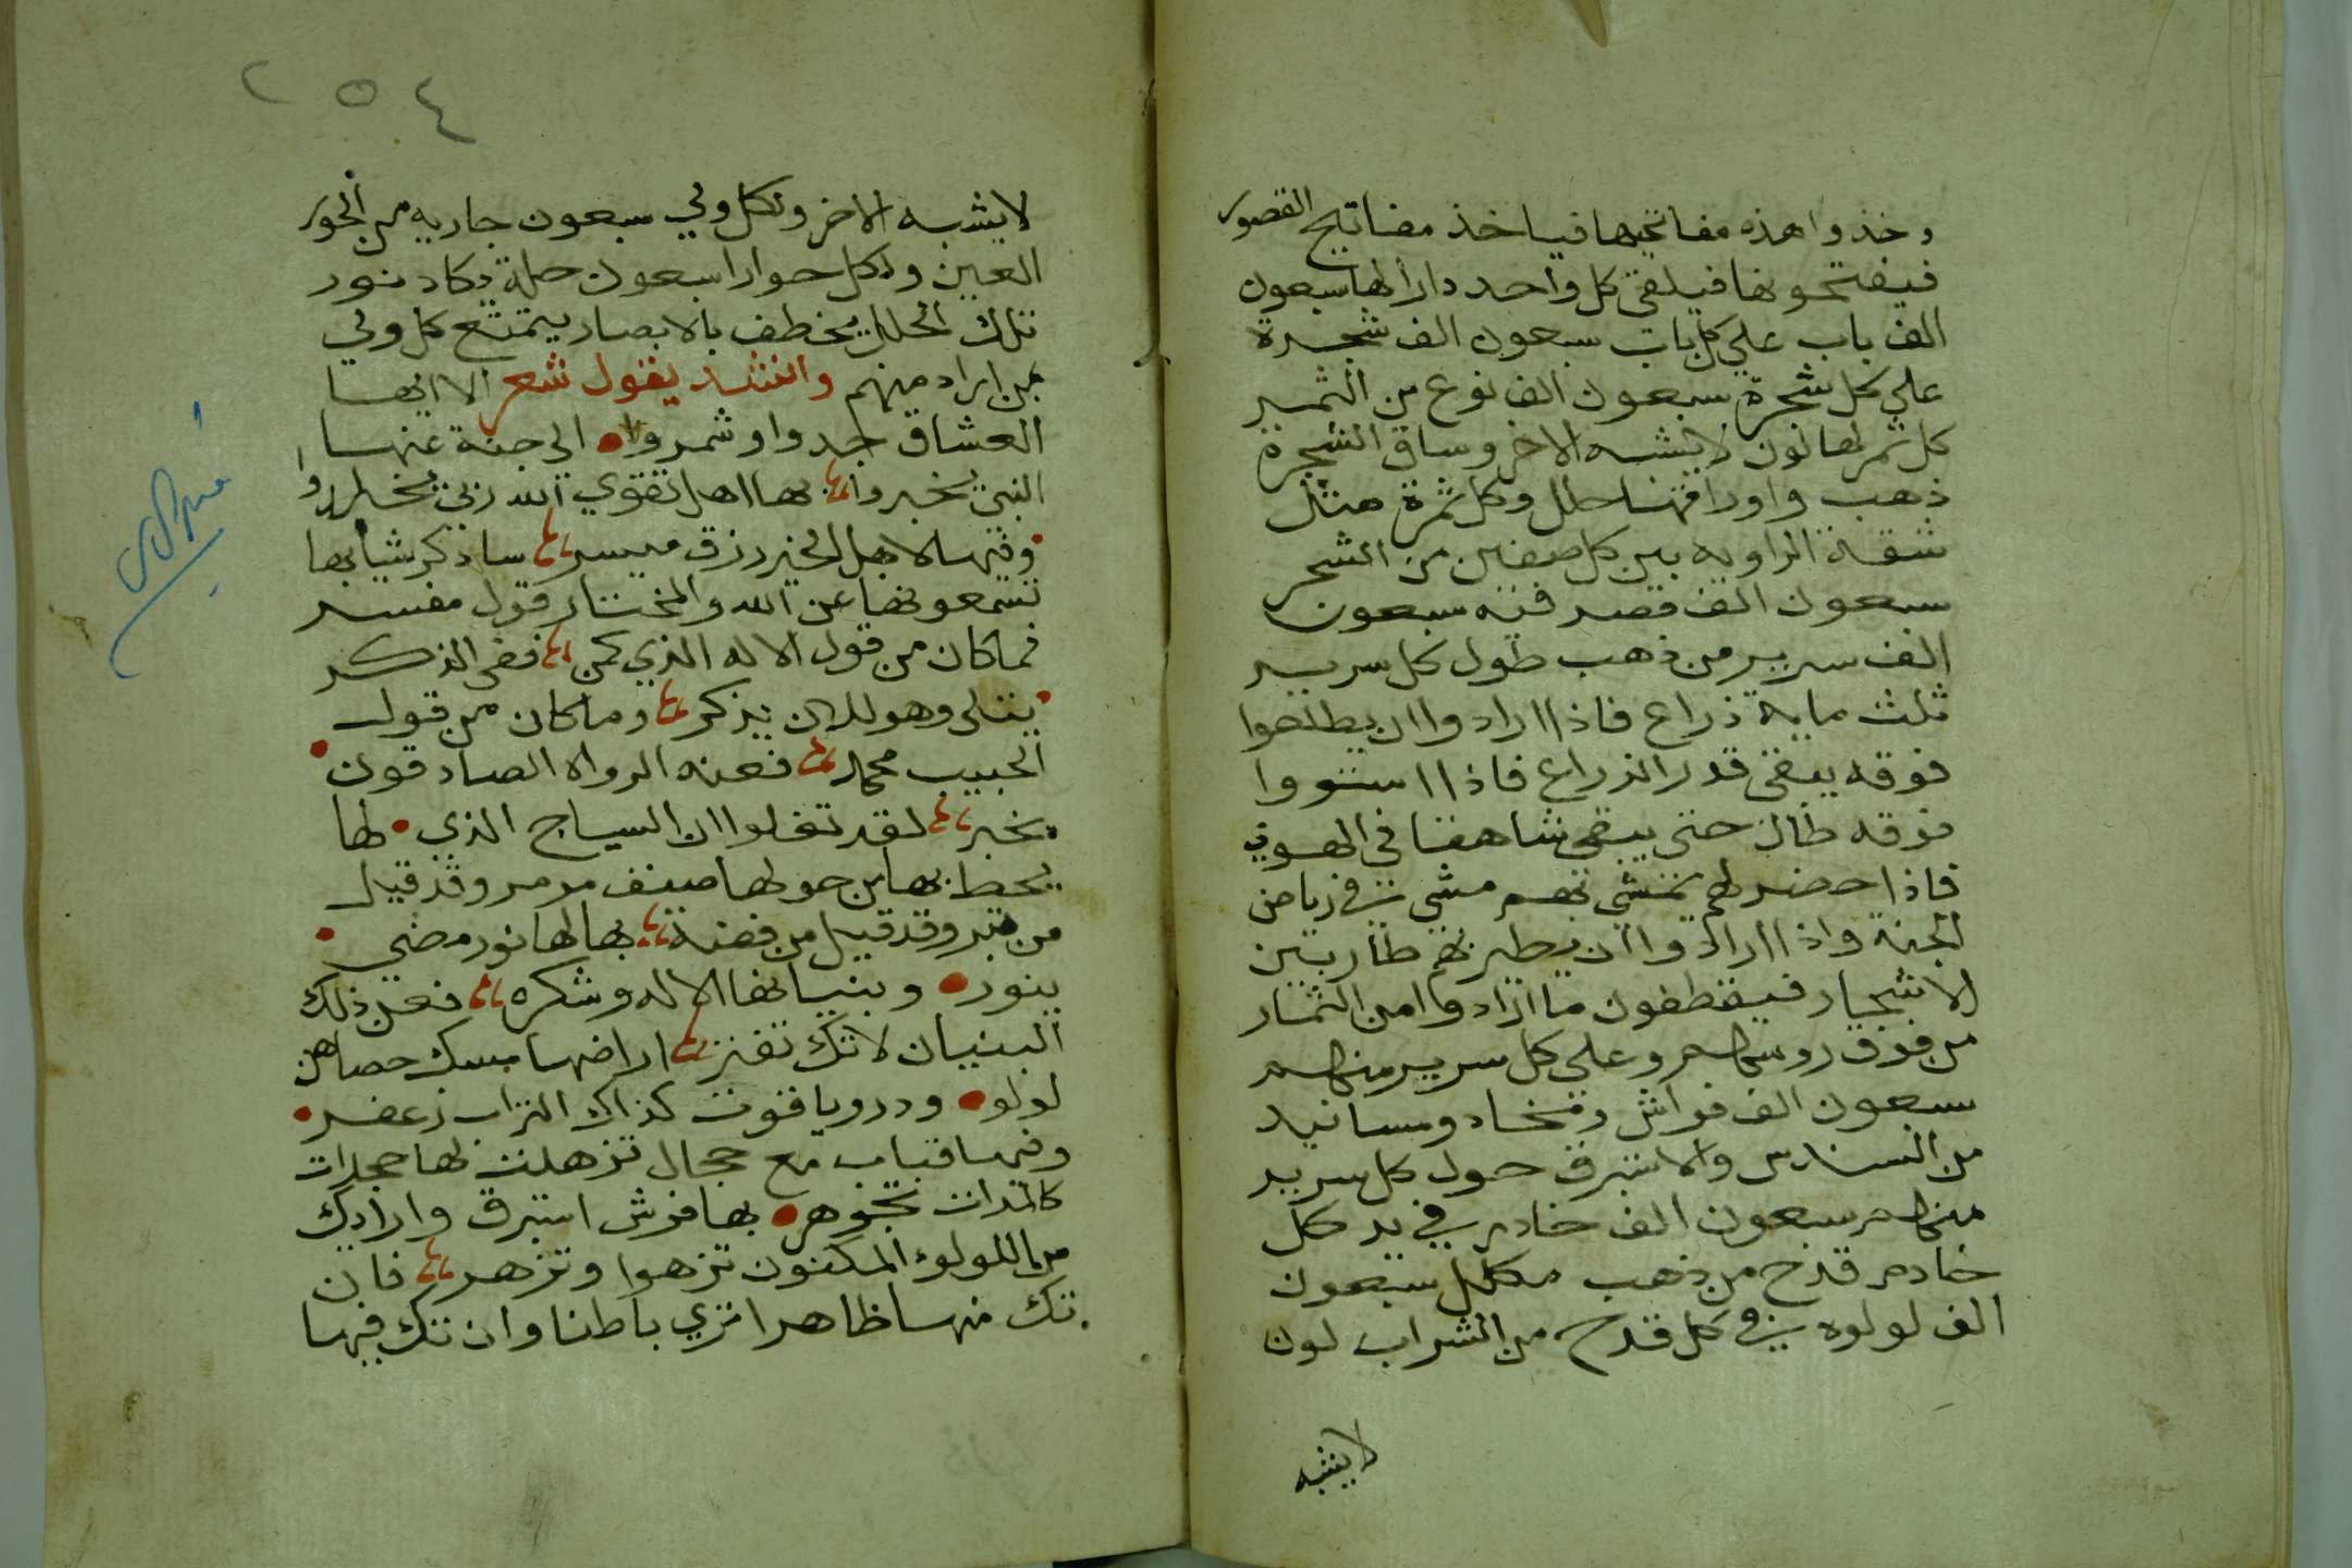 وخذوا هذه مفاتيحها فياخذ مفاتيح القصور
فيفتحونها فيلقى كل واحد دارا لها سبعون
الف باب على كل باب سبعون الف شجرة
على كل شجرة سبعون الف نوع من الثمر
كل ثمر لها لون لا يشبه الاخر وساق الشجرة
ذهب واوراقها حلل وكل ثمرة مثل
شقة الراويه بين كل صفين من الشجر
سبعون الف قصر فيه سبعون
الف سرير من ذهب طول كل سرير
ثلث ماية ذراع فاذا ارادوا ان يطلعوا
فوقه يبقى قدر الذراع فاذا استووا
فوقه طال حتى يبقى شاهقا في الهوي
فاذا خطر لهم تمشى بهم مشي في رياض
الجنة واذا ارادوا ان يطير بهم طار بين
الاشجار فيقطفون ما ارادوا من الثمار
من فوق روسهم وعلى كل سرير منهم
سبعون الف فراش ومخاد ومسانيد
من السندس والاستبرق حول كل سرير
منهم سبعون الف خادم في يد كل
خادم قدح من ذهب مكلل سبعون
الف لولوه في كل قدح من الشراب لون
لا يشبه
٢٥٤
لا يشبه الاخر ولكل ولي سبعون جاريه من الحور
العين ولكل حورا سبعون حلة يكاد نور
تلك الحلل يخطف بالابصار يتمتع كل ولي
بمن اراد منهم وانشد يقول شعر الا ايها
العشاق جدوا وشمروا الى جنة عنها
النبي يخبروا بها اهل تقوي الله ربي يخطروا
وفيها لاهل الخير رزق ميسر ساذكر شيا بها
تسمعونها عن الله والمختار قول مفسر
فما كان من قول الاله الذي كمن ففى الذكر
يتلى وهو للان يذكر وما كان من قول
الحبيب محمد فعنه الرواه الصادقون
يخبر لقد تقلوا ان السياج الذي لها
يحط بها من حولها صنف مرمر وقد قيل
من تبر وقد قيل من فضة بها لها نور مضي
ينور وبنيانها الاله وشكره فعن ذلك
البنيان لا تك تفتر اراضها مسك حصاهن
لولو ودر وياقوت كذاك التراب زعفر
وفيها قباب مع حجال تزهلت لها حجرات
كالمدات تجوهر بها فرش استبرق وارايك
من اللولوء المكنون تزهوا وتزهر فان
تك فيها ظاهرا تري باطنا وان تك فيها